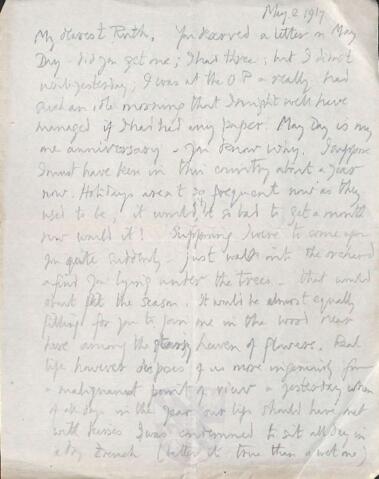 May 2 1917
My dearest Ruth, You deserved a letter on May
Day - did you get one; I had three; but I did not
write yesterday; I was at the O P & really had
such an idle morning that I might well have
managed if I had had any paper. May Day is my
one anniversary - you know why. I suppose
I must have been in this country about a year
now. Holidays aren't so frequent now as they
used to be; it wouldn't be so bad to get a month
now would it! Supposing I were to come upon
you quite suddenly - just walk into the orchard
& find you lying under the trees - that would
about fit the season. It would be almost equally
fitting for you to join me in the wood near
here among the starry heaven of flowers. Real
life however disposes of us more ingeniously from
a malignant point of view & yesterday when
of all days in the year our lips should have met
with kisses I was condemned to sit all day in
a dry trench (better it's true than a wet one)